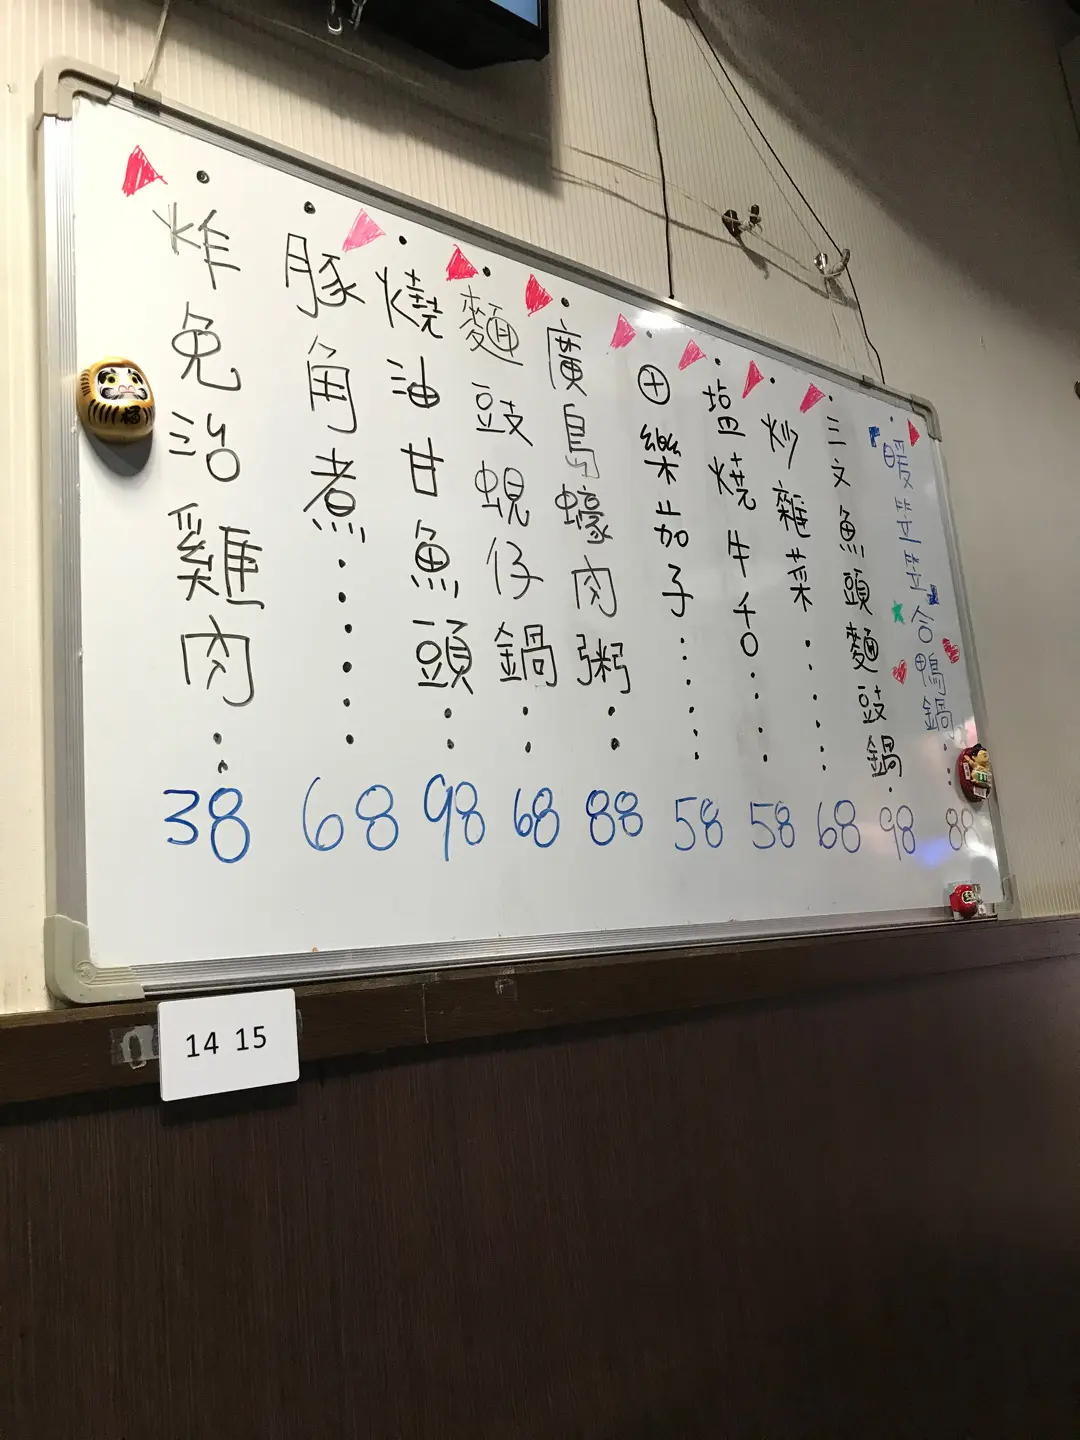 暖笠笠合鴨鍋 88
三文魚頭麵豉鍋 98
炒雜菜 68
塩燒牛舌 58
田樂茄子 58
廣島蠔肉粥 88
麵豉蜆仔鍋 68
燒油甘魚頭 98
豚角煮 68
炸免治雞肉 38
14 15